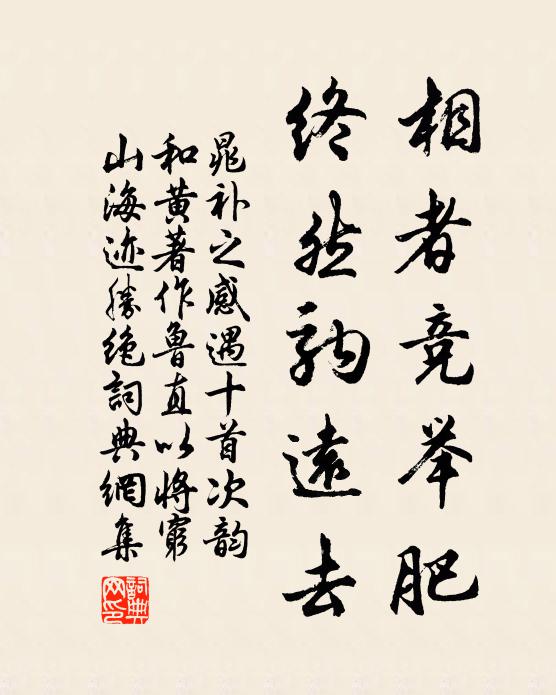 相者竞举肥
終然驹遠去
晁补之感遇十首次韵
和黄著作魯直以将窮
山海迹勝絶詞典網集
詞典网印